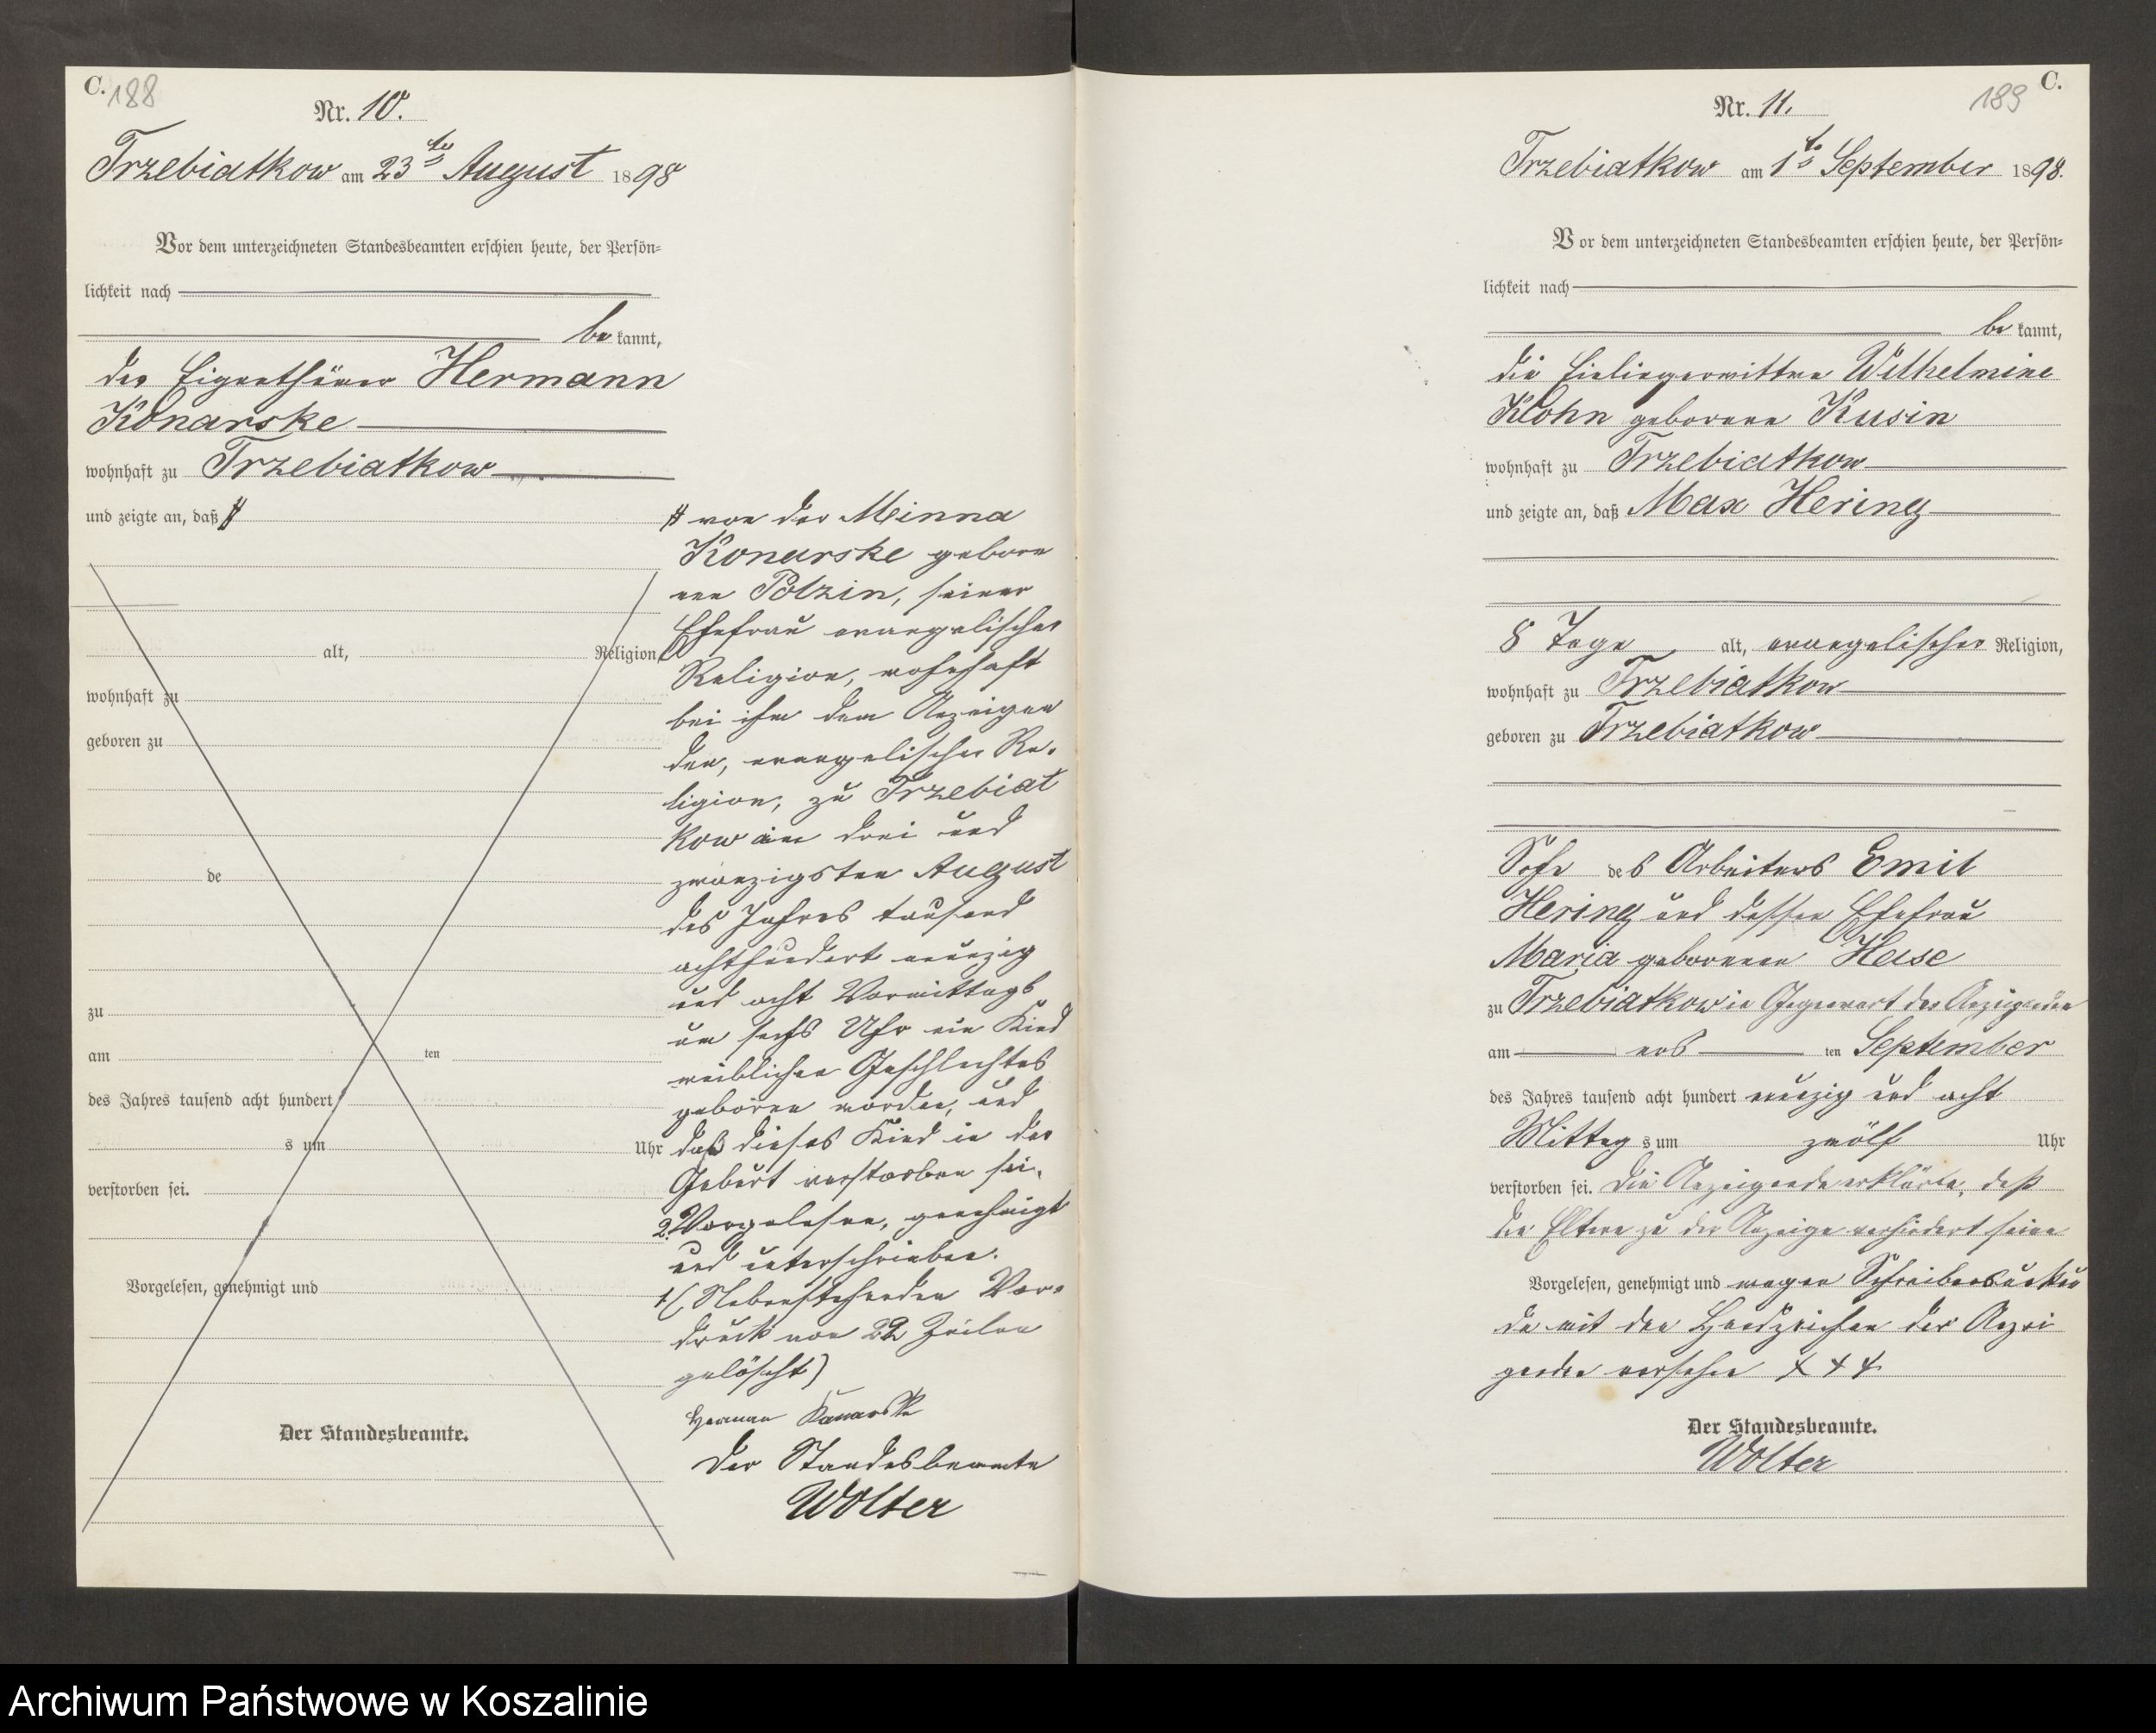 C. 188
Nr. 10.
Trzebiatkow am 23ten August 1898
Vor dem unterzeichneten Standesbeamten erschien heute, der Persön-
lichkeit nach
be kannt,
der Eigenthümer Hermann
Konarske
wohnhaft zu Trzebiatkow
und zeigte an, daß #
alt, Religion,
wohnhaft zu
geboren zu
de
zu
am ten
des Jahres tausend acht hundert
s um Uhr
verstorben sei.
Vorgelesen, genehmigt und
Der Standesbeamte.
# von der Minna
Konarske gebore
nen Polzin, seiner
Ehefrau evangelischer
Religion, wohnhaft
bei ihm dem Anzeigen
den, evangelischer Re-
ligion, zu Trzebiat
kow am drei und
zwanzigsten August
des Jahres tausend
achthundert neunzig
und acht Vormittags
um sechs Uhr ein Kind
weiblichen Geschlechtes
geboren worden, und
daß dieses Kind in der
Geburt verstorben sei.
2. Vorgelesen, genehmigt
und unterschrieben.
1 (Nebenstehenden Vor-
druck von 22 Zeilen
gelöscht)
Herman Konarske
Der Standesbeamte
Wolter
C.
189
Nr. 11.
Trzebiatkow am 1ten September 1898.
Vor dem unterzeichneten Standesbeamten erschien heute, der Persön-
lichkeit nach
be kannt,
die Einliegerwittwe Wilhelmine
Klohn geborene Kusin
wohnhaft zu Trzebiatkow
und zeigte an, daß Max Hering
8 Tage alt, evangelischer Religion,
wohnhaft zu Trzebiatkow
geboren zu Trzebiatkow
Sohn des Arbeiters Emil
Hering und dessen Ehefrau
Maria geborenen Heise
zu Trzebiatkow in Gegenwart der Anzeigenden
am ers ten September
des Jahres tausend acht hundert neunzig und acht
Mittag s um zwölf Uhr
verstorben sei. Die Anzeigende erklärte, daß
die Eltern zu der Anzeige verhindert seien
Vorgelesen, genehmigt und wegen Schreibensunkun
de mit den Handzeichen der Anzei
genden versehen + + +
Der Standesbeamte.
Wolter
Archiwum Państwowe w Koszalinie